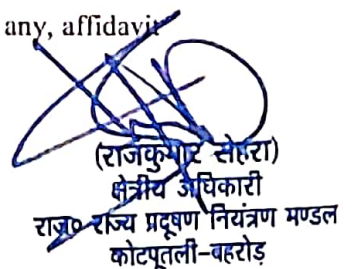 any, affidavit
(राजकुमार सेहरा)
क्षेत्रीय अधिकारी
राज० राज्य प्रदूषण नियंत्रण मण्डल
कोटपूतली-बहरोड़